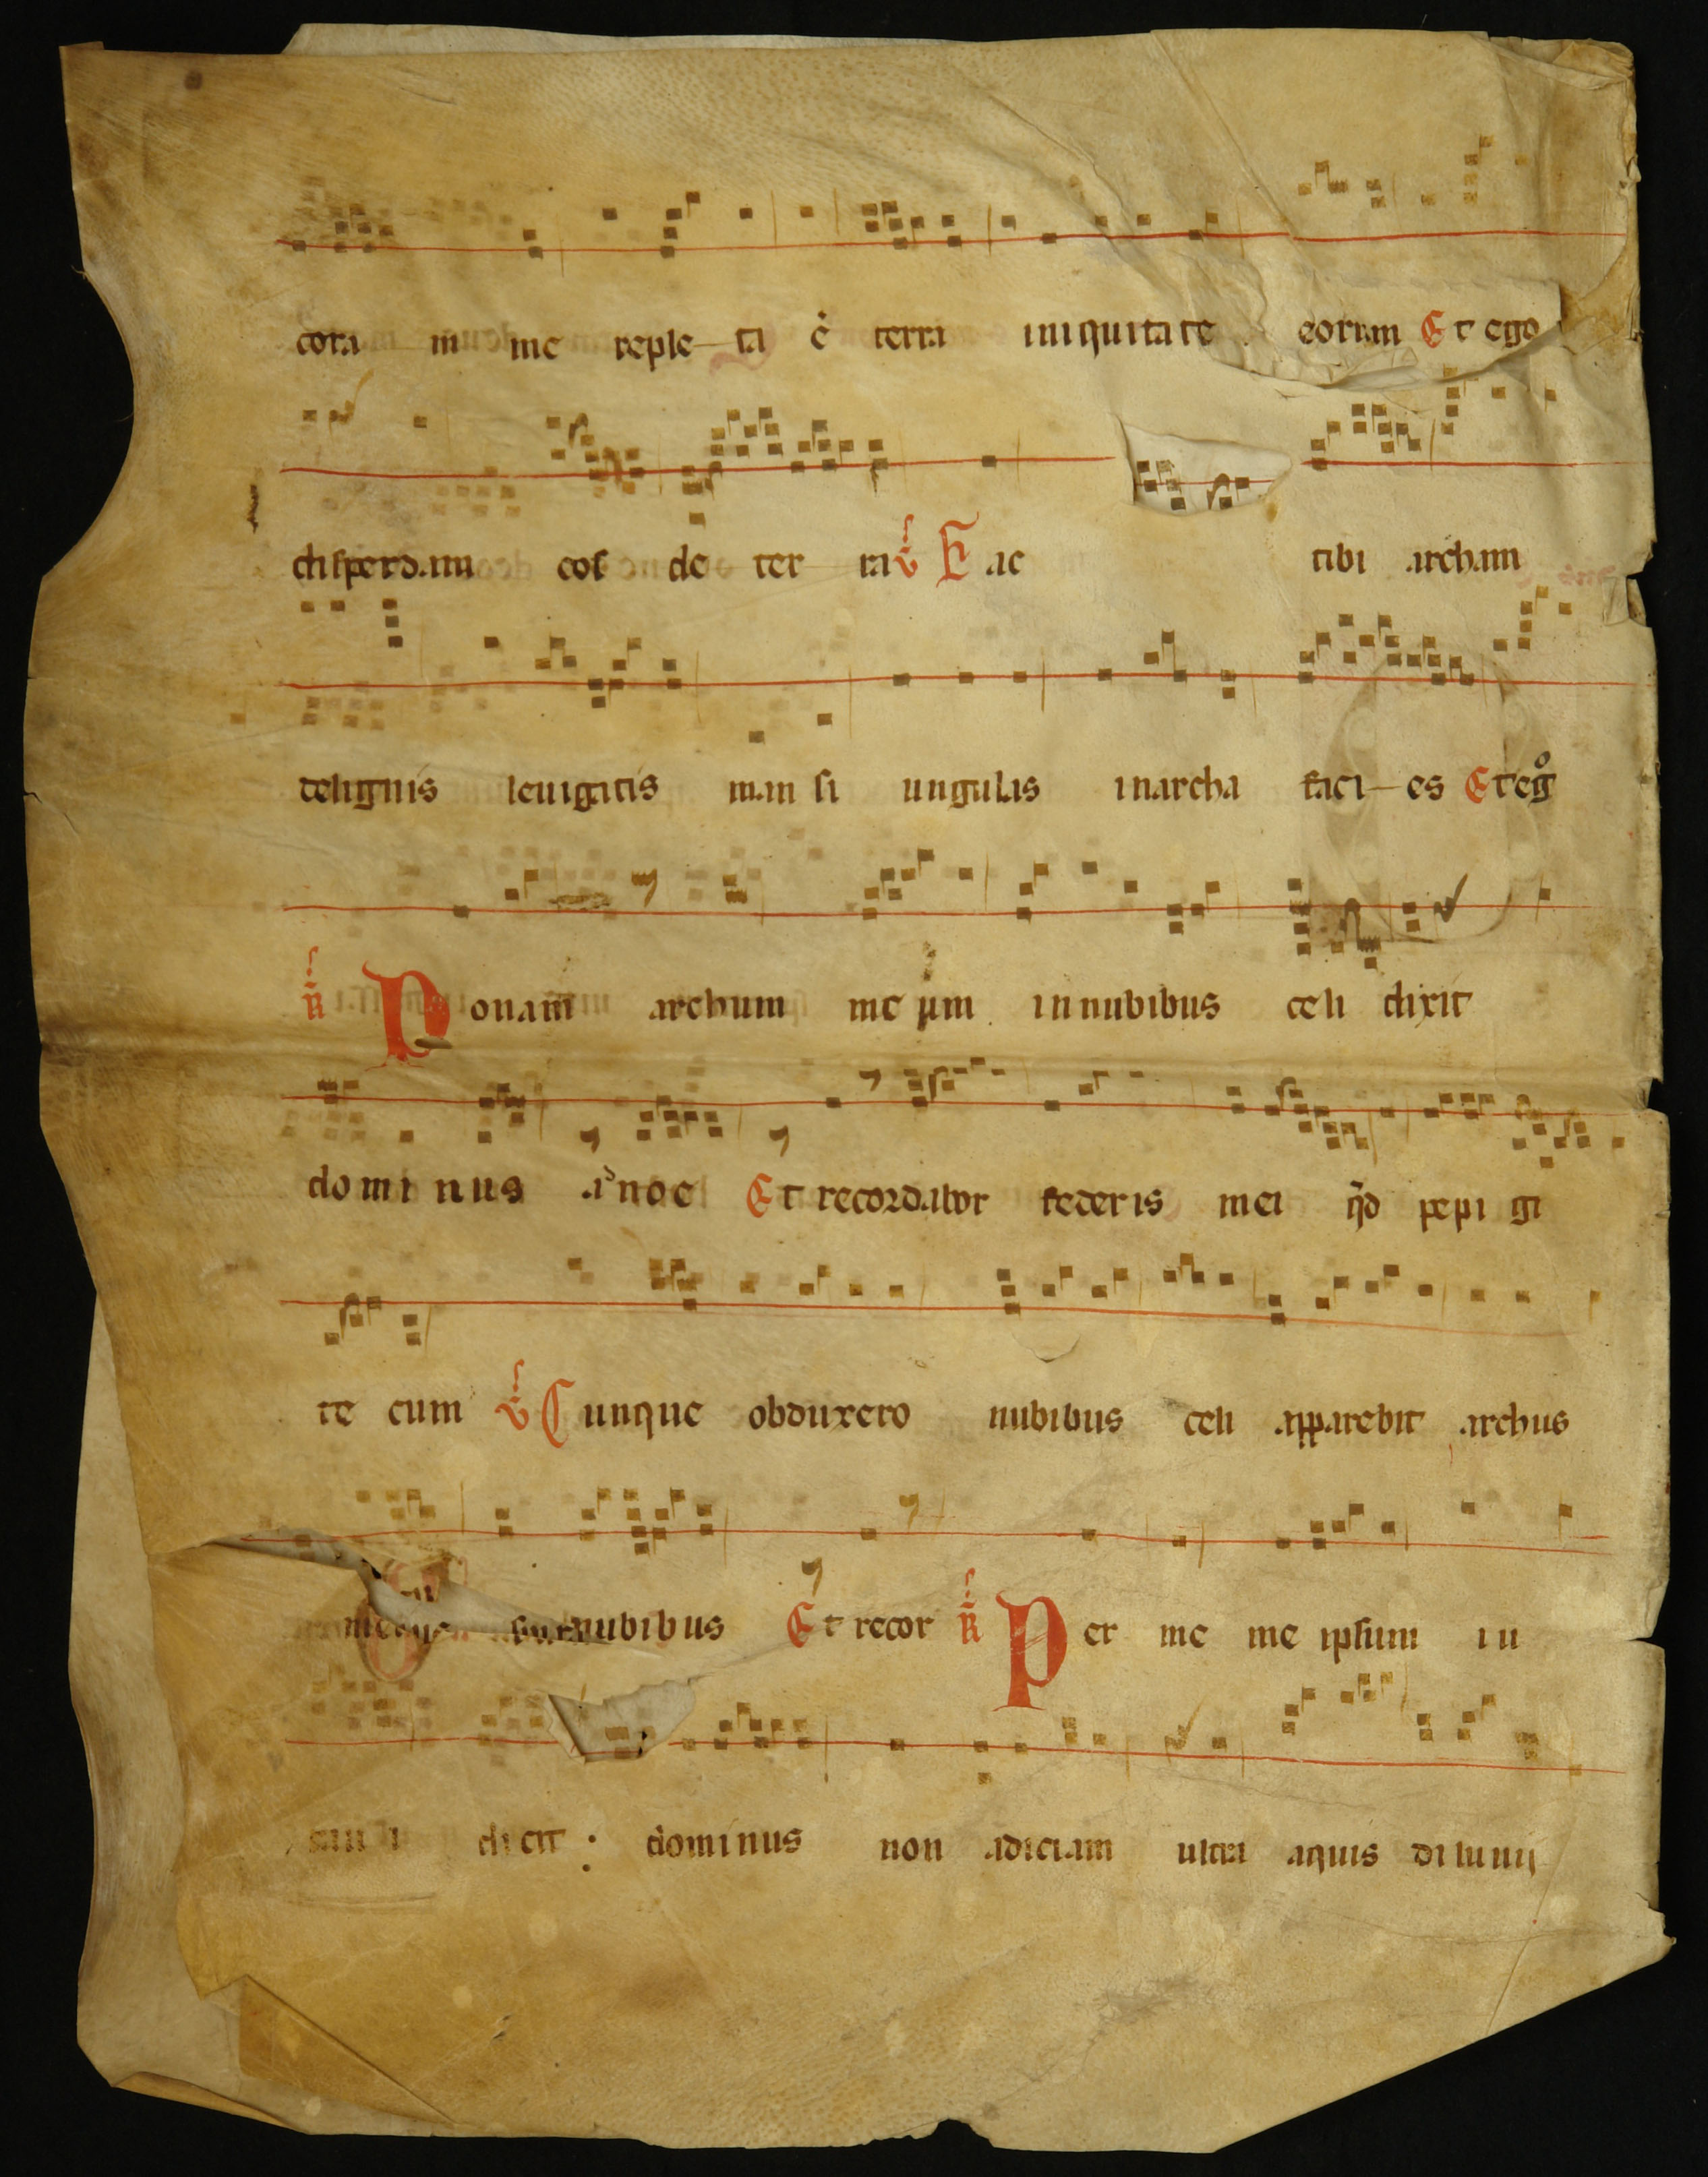 cora m me reple ta ē terra iniquitate eorum Et ego
disperdam eos de ter ra ℣ Fac tibi archam
delignis leuigatis man si ungulas inarcha faci es Et eg̊
℟ Ponam archum me um innubibus celi dixit
dominus a noe Et recordabor federis mei qd̄ pepi gi
te cum ℣ Cunque obduxero nubibus celi apparebit archus
nubibus Et recor ℟ Per me me ipsum iu
dicit dominus non adiciam ultra aquis diluuij